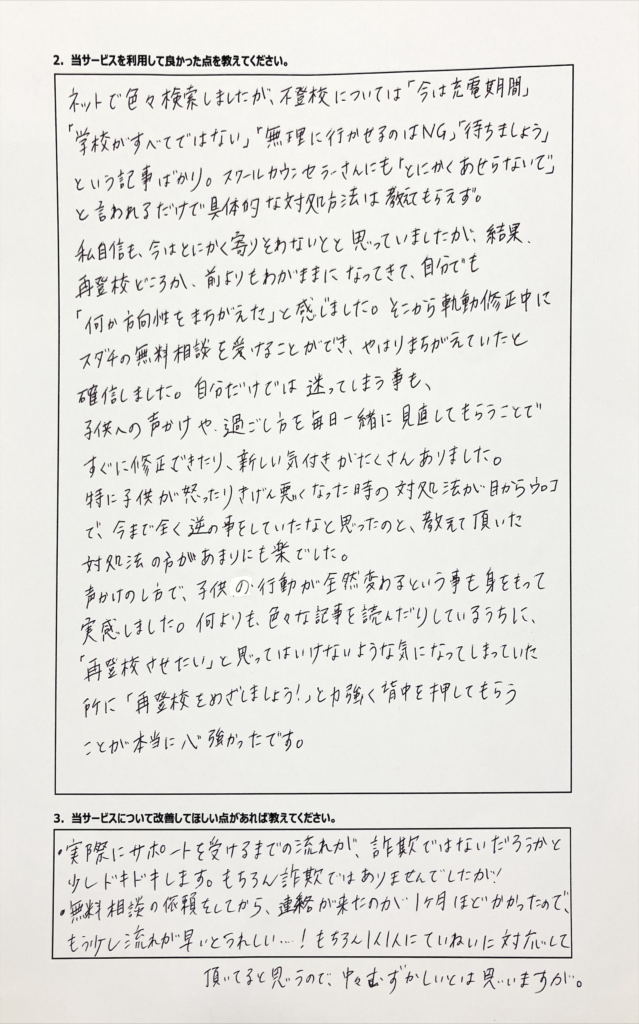 2. 当サービスを利用して良かった点を教えてください。
ネットで色々検索しましたが、不登校については「今は充電期間」
「学校がすべてではない」「無理に行かせるのはNG」「待ちましょう」
という記事ばかり。スクールカウンセラーさんにも「とにかくあせらないで」
と言われるだけで具体的な対処方法は教えてもらえず。
私自信も、今はとにかく寄りそわないとと思っていましたが、結果、
再登校どころか、前よりもわがままになってきて、自分でも
「何か方向性をまちがえた」と感じました。そこから軌動修正中に
スダチの無料相談を受けることができ、やはりまちがえていたと
確信しました。自分だけでは迷ってしまう事も、
子供への声かけや、過ごし方を毎日一緒に見直してもらうことで
すぐに修正できたり、新しい気付きがたくさんありました。
特に子供が怒ったりきげん悪くなった時の対処法が目からウロコ
で、今まで全く逆の事をしていたなと思ったのと、教えて頂いた
対処法の方があまりにも楽でした。
声かけのし方で、子供の行動が全然変わるという事も身をもって
実感しました。何よりも、色々な記事を読んだりしているうちに、
「再登校させたい」と思ってはいけないような気になってしまっていた
所に「再登校をめざしましょう!」と力強く背中を押してもらう
ことが本当に心強かったです。
3. 当サービスについて改善してほしい点があれば教えてください。
・実際にサポートを受けるまでの流れが、詐欺ではないだろうかと
少しドキドキします。もちろん詐欺ではありませんでしたが!
・無料相談の依頼をしてから、連絡が来たのが1ヶ月ほどかかったので、
もう少し流れが早いとうれしい…!もちろん1人1人にていねいに対応して
頂いてると思うので、中々むずかしいとは思いますが。